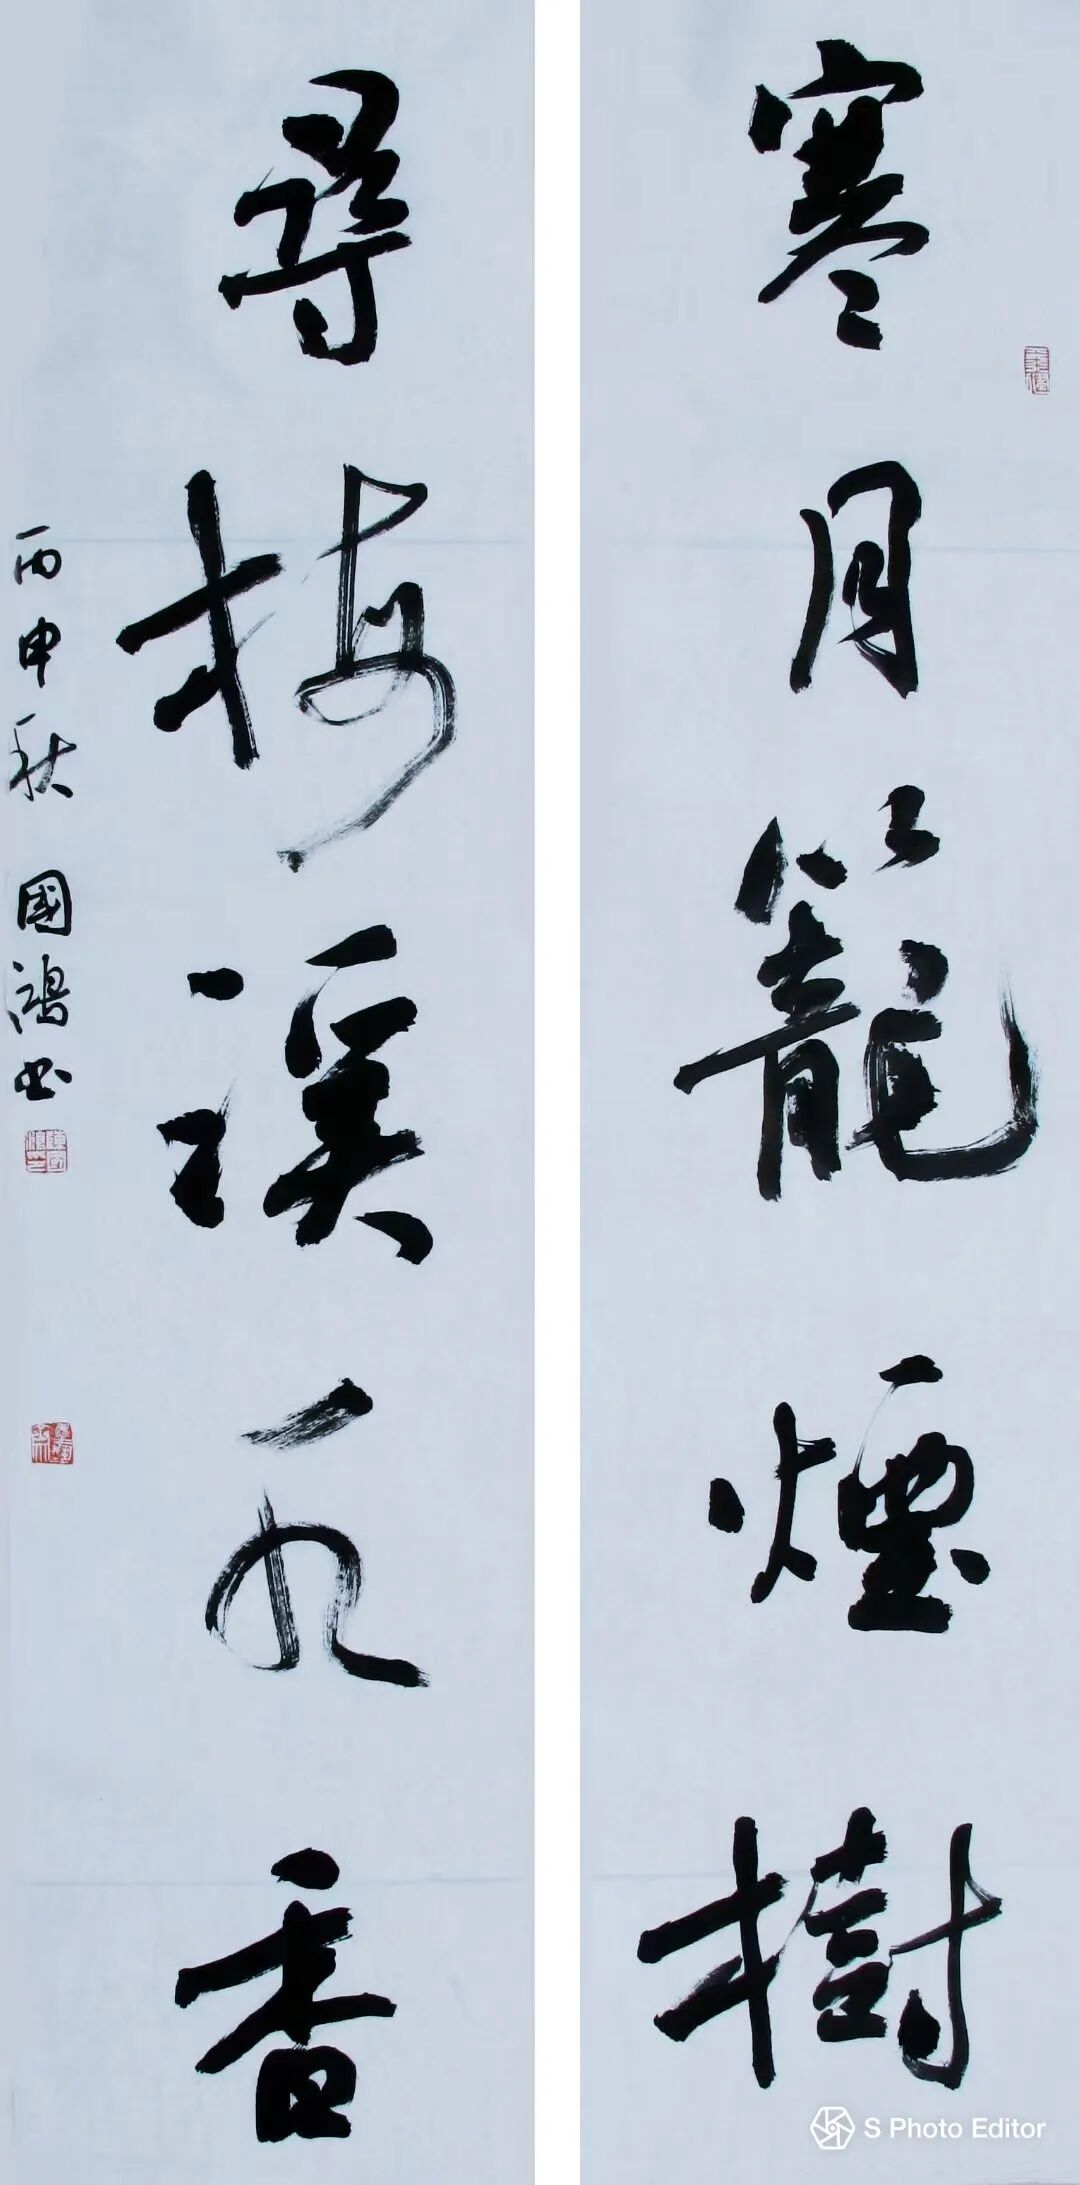 寒月籠煙樹
尋梅溪水香
丙申秋 國鴻书
S Photo Editor